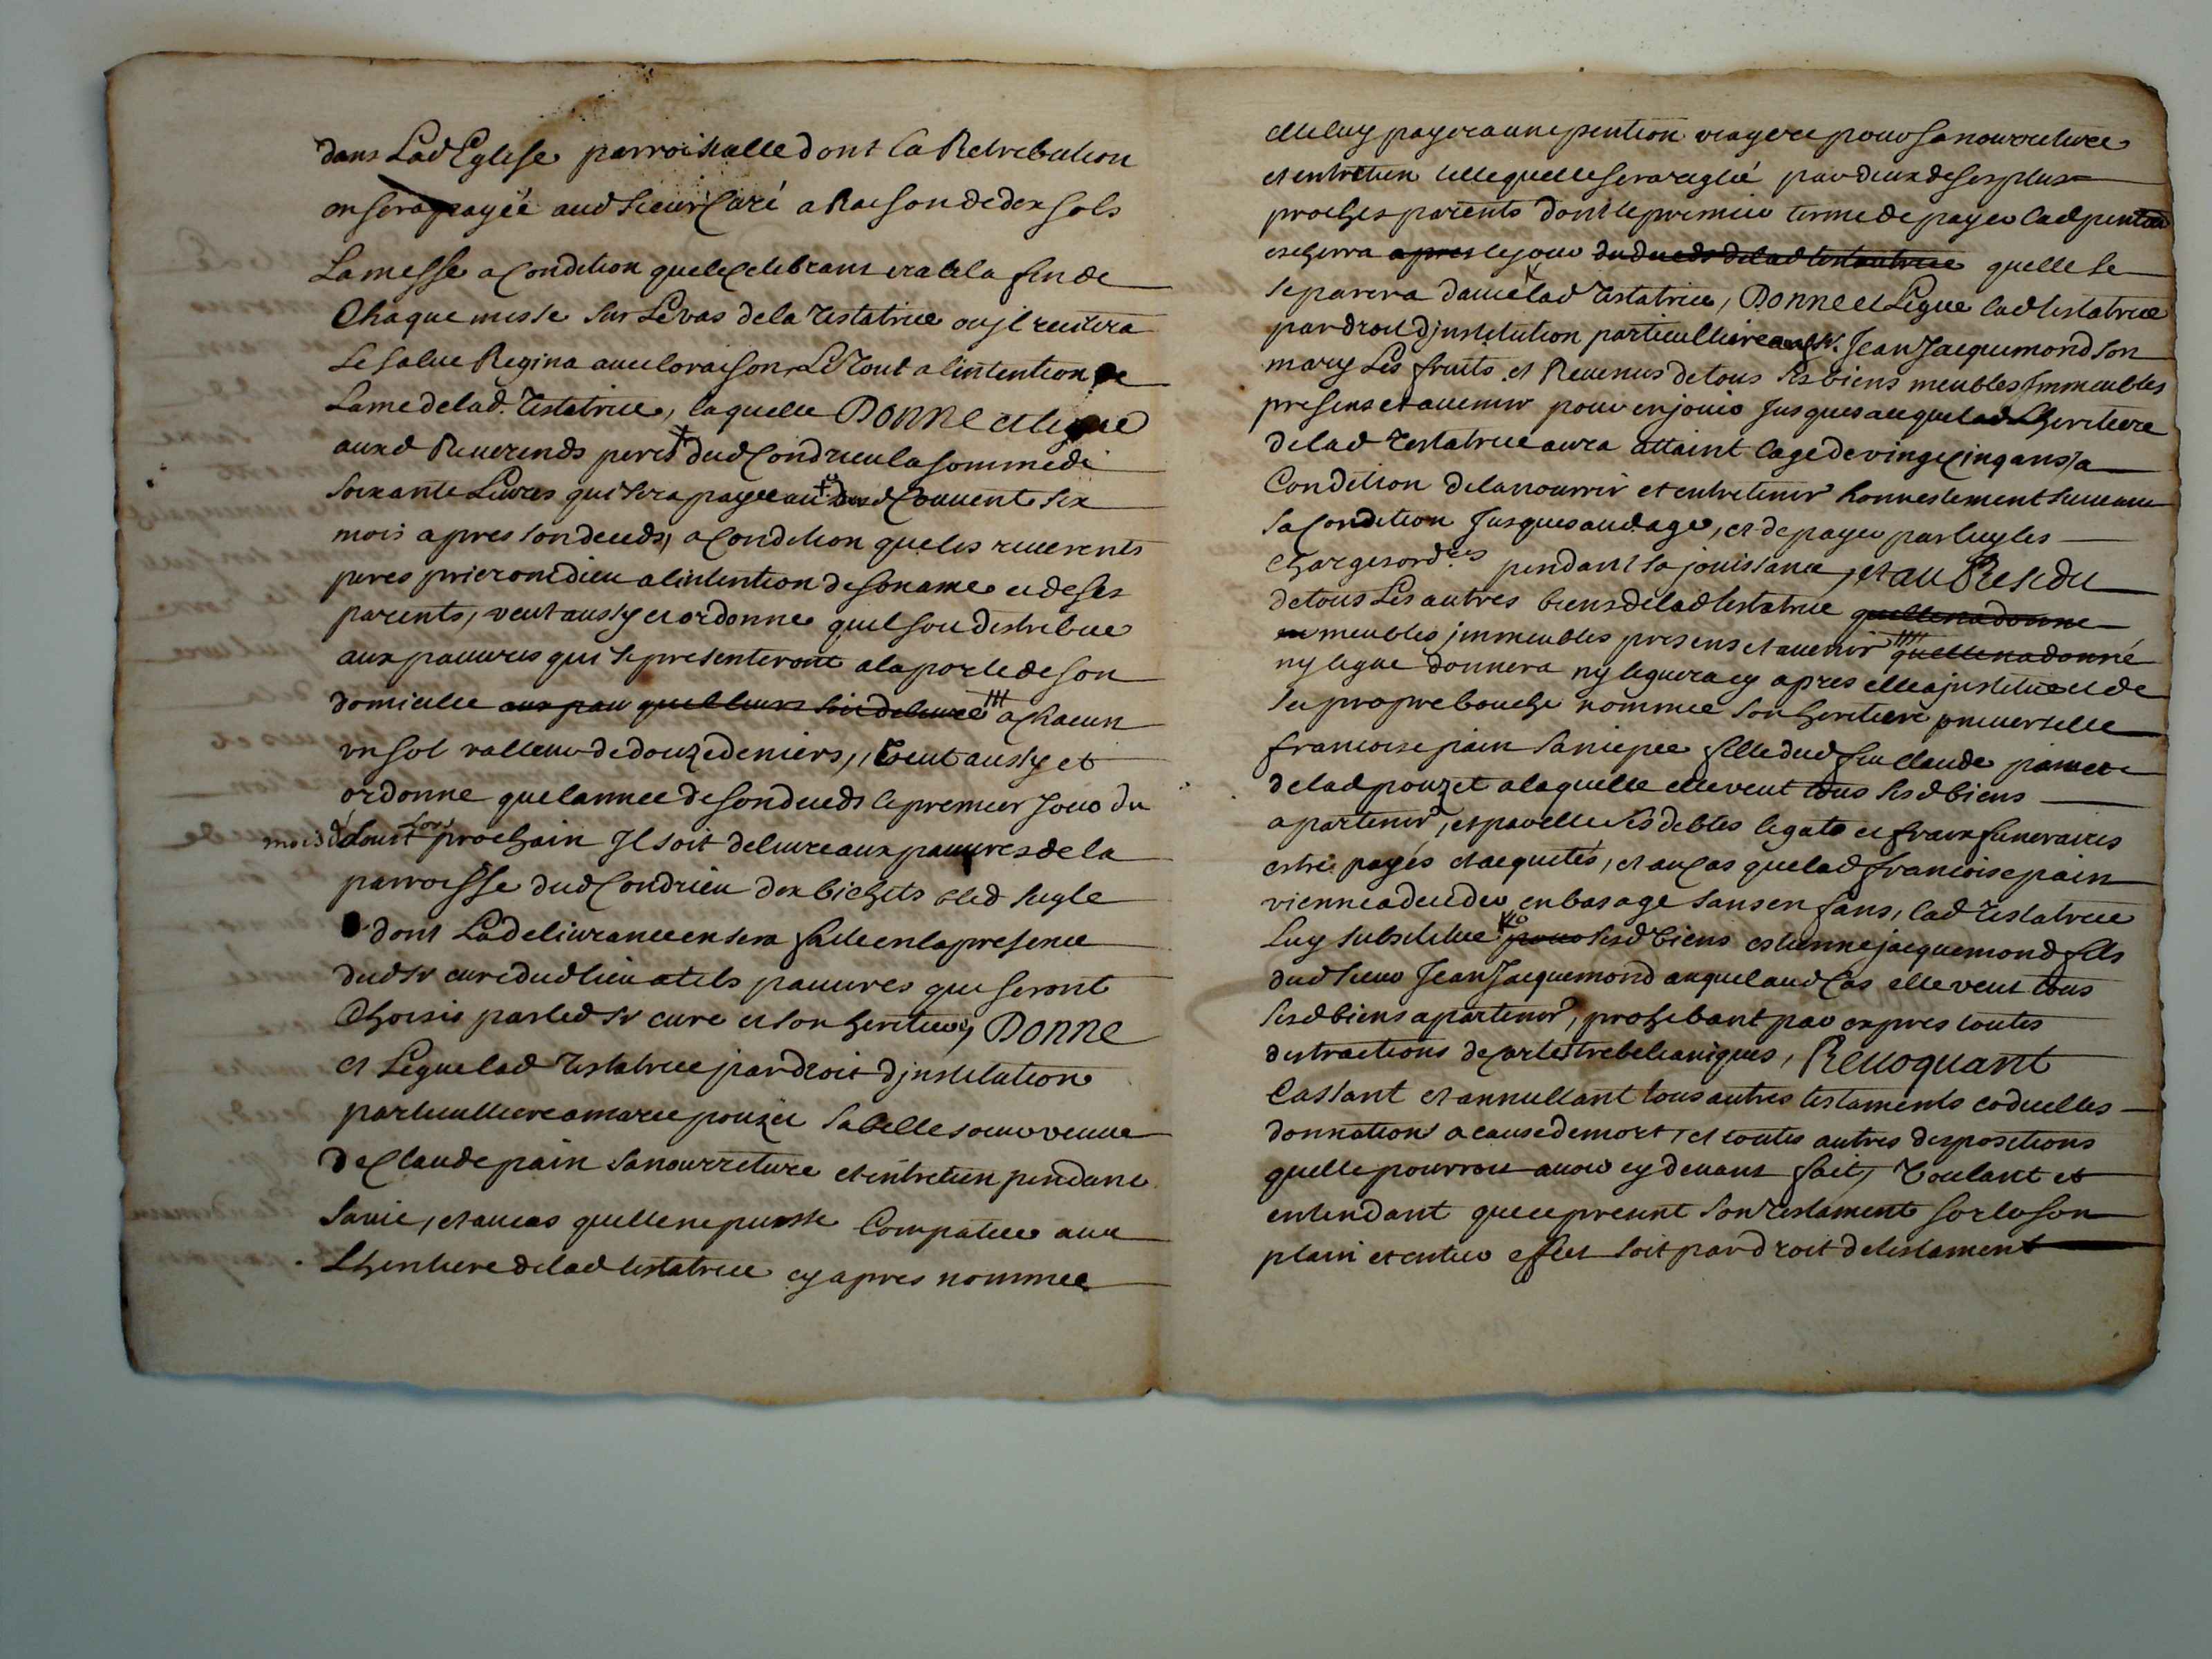 dans Lad Eglise parroissialle dont la Retrebution
en sera payée aud sieur Curé a Raison de dix sols
La messe a Condition que le Celebrant ira a la fin de
Chaque messe sur Le vas de la Testatrice ou jl recitera
Le salue Regina auec loraison, Le Tout a lintention de
Lame de lad. Testatrice, laquelle Donne et legue
auxd Reuerends peres dud Condrieu la somme de
soixante Liures qui sera payée aud Couuent six
mois apres son deceds, a Condition que les reuerents
peres prieront dieu a lintention de son ame et de ses
parents, veut aussy et ordonne quil soit distribue
aux pauures qui se presenteront a la porte de son
domicille aux pau quil leur soit deliuré a Chacun
vn sol valleur de douze deniers, Veut aussy et
ordonne que lannee de son deceds le premier Jour du
mois d'Aoust lors prochain Jl soit deliure aux pauures de la
parroisse dud Condrieu dix bichets bled seigle
dont La deliurance en sera faite en la presence
dud sr curé dud lieu a tels pauures qui seront
Choisis par led sr curé et son heritiere, Donne
et Legue lad Testatrice par droit d'jnstitution
particulliere a marie pouzet sa belle soeur veuue
de Claude pain sa nourriture et entretien pendant
sa vie, et au cas quelle ne puisse Compatir auec
Lheritiere de lad testatrice cy apres nommee
elle luy payera une pention viagere pour sa nourriture
et entretien telle quelle sera reglée par deux de ses plus
proches parents dont le premier terme de payer lad pention
escherra apres le jour du deceds de lad testatrice quelle se
separera dauec lad Testatrice, Donne et Legue lad testatrice
par droit d'jnstitution particulliere aud sr. Jean Jacquemond son
mary Les fruits et Reuenus de tous ses biens meubles Jmmeubles
presens et auenir pour en jouir Jusques a ce que lad Lheritiere
de lad Testatrice aura attaint lage de vingt Cinq ans, a
Condition de la nourrir et entretenir honnestement suiuant
sa Condition Jusques aud age, et de payer par luy les
Charges ord.res pendant sa jouissance, et au Residu
de tous Les autres biens de lad testatrice quelle na donné
meubles jmmeubles presens et auenir quelle na donné
ny legue donnera ny leguera cy apres elle a jnstitué et de
sa propre bouche nommee son heritiere vniuerselle
francoise pain sa niepce fille dud feu Claude pain et
de lad pouzet a laquelle elle veut tous sesd biens
apartenir, et par elle ses debtes legats et fraix funeraires
estre payés et acquités, et au Cas que lad francoise pain
vienne a deceder en bas age sans enfans, lad Testatrice
Luy substitue pour sesd biens estienne jacquemond fils
dud sieur Jean Jacquemond auquel aud Cas elle veut tous
sesd biens apartenir, prohibant par expres toutes
distractions de Carte trebelianiques, Reuoquant
Cassant et annullant tous autres testaments codicilles
donnations a cause de mort, et toutes autres dispositions
quelle pourroit auoir cy deuant fait, Voulant et
entendant que ce present son Testament sorte son
plain et entier effet soit par droit de testament